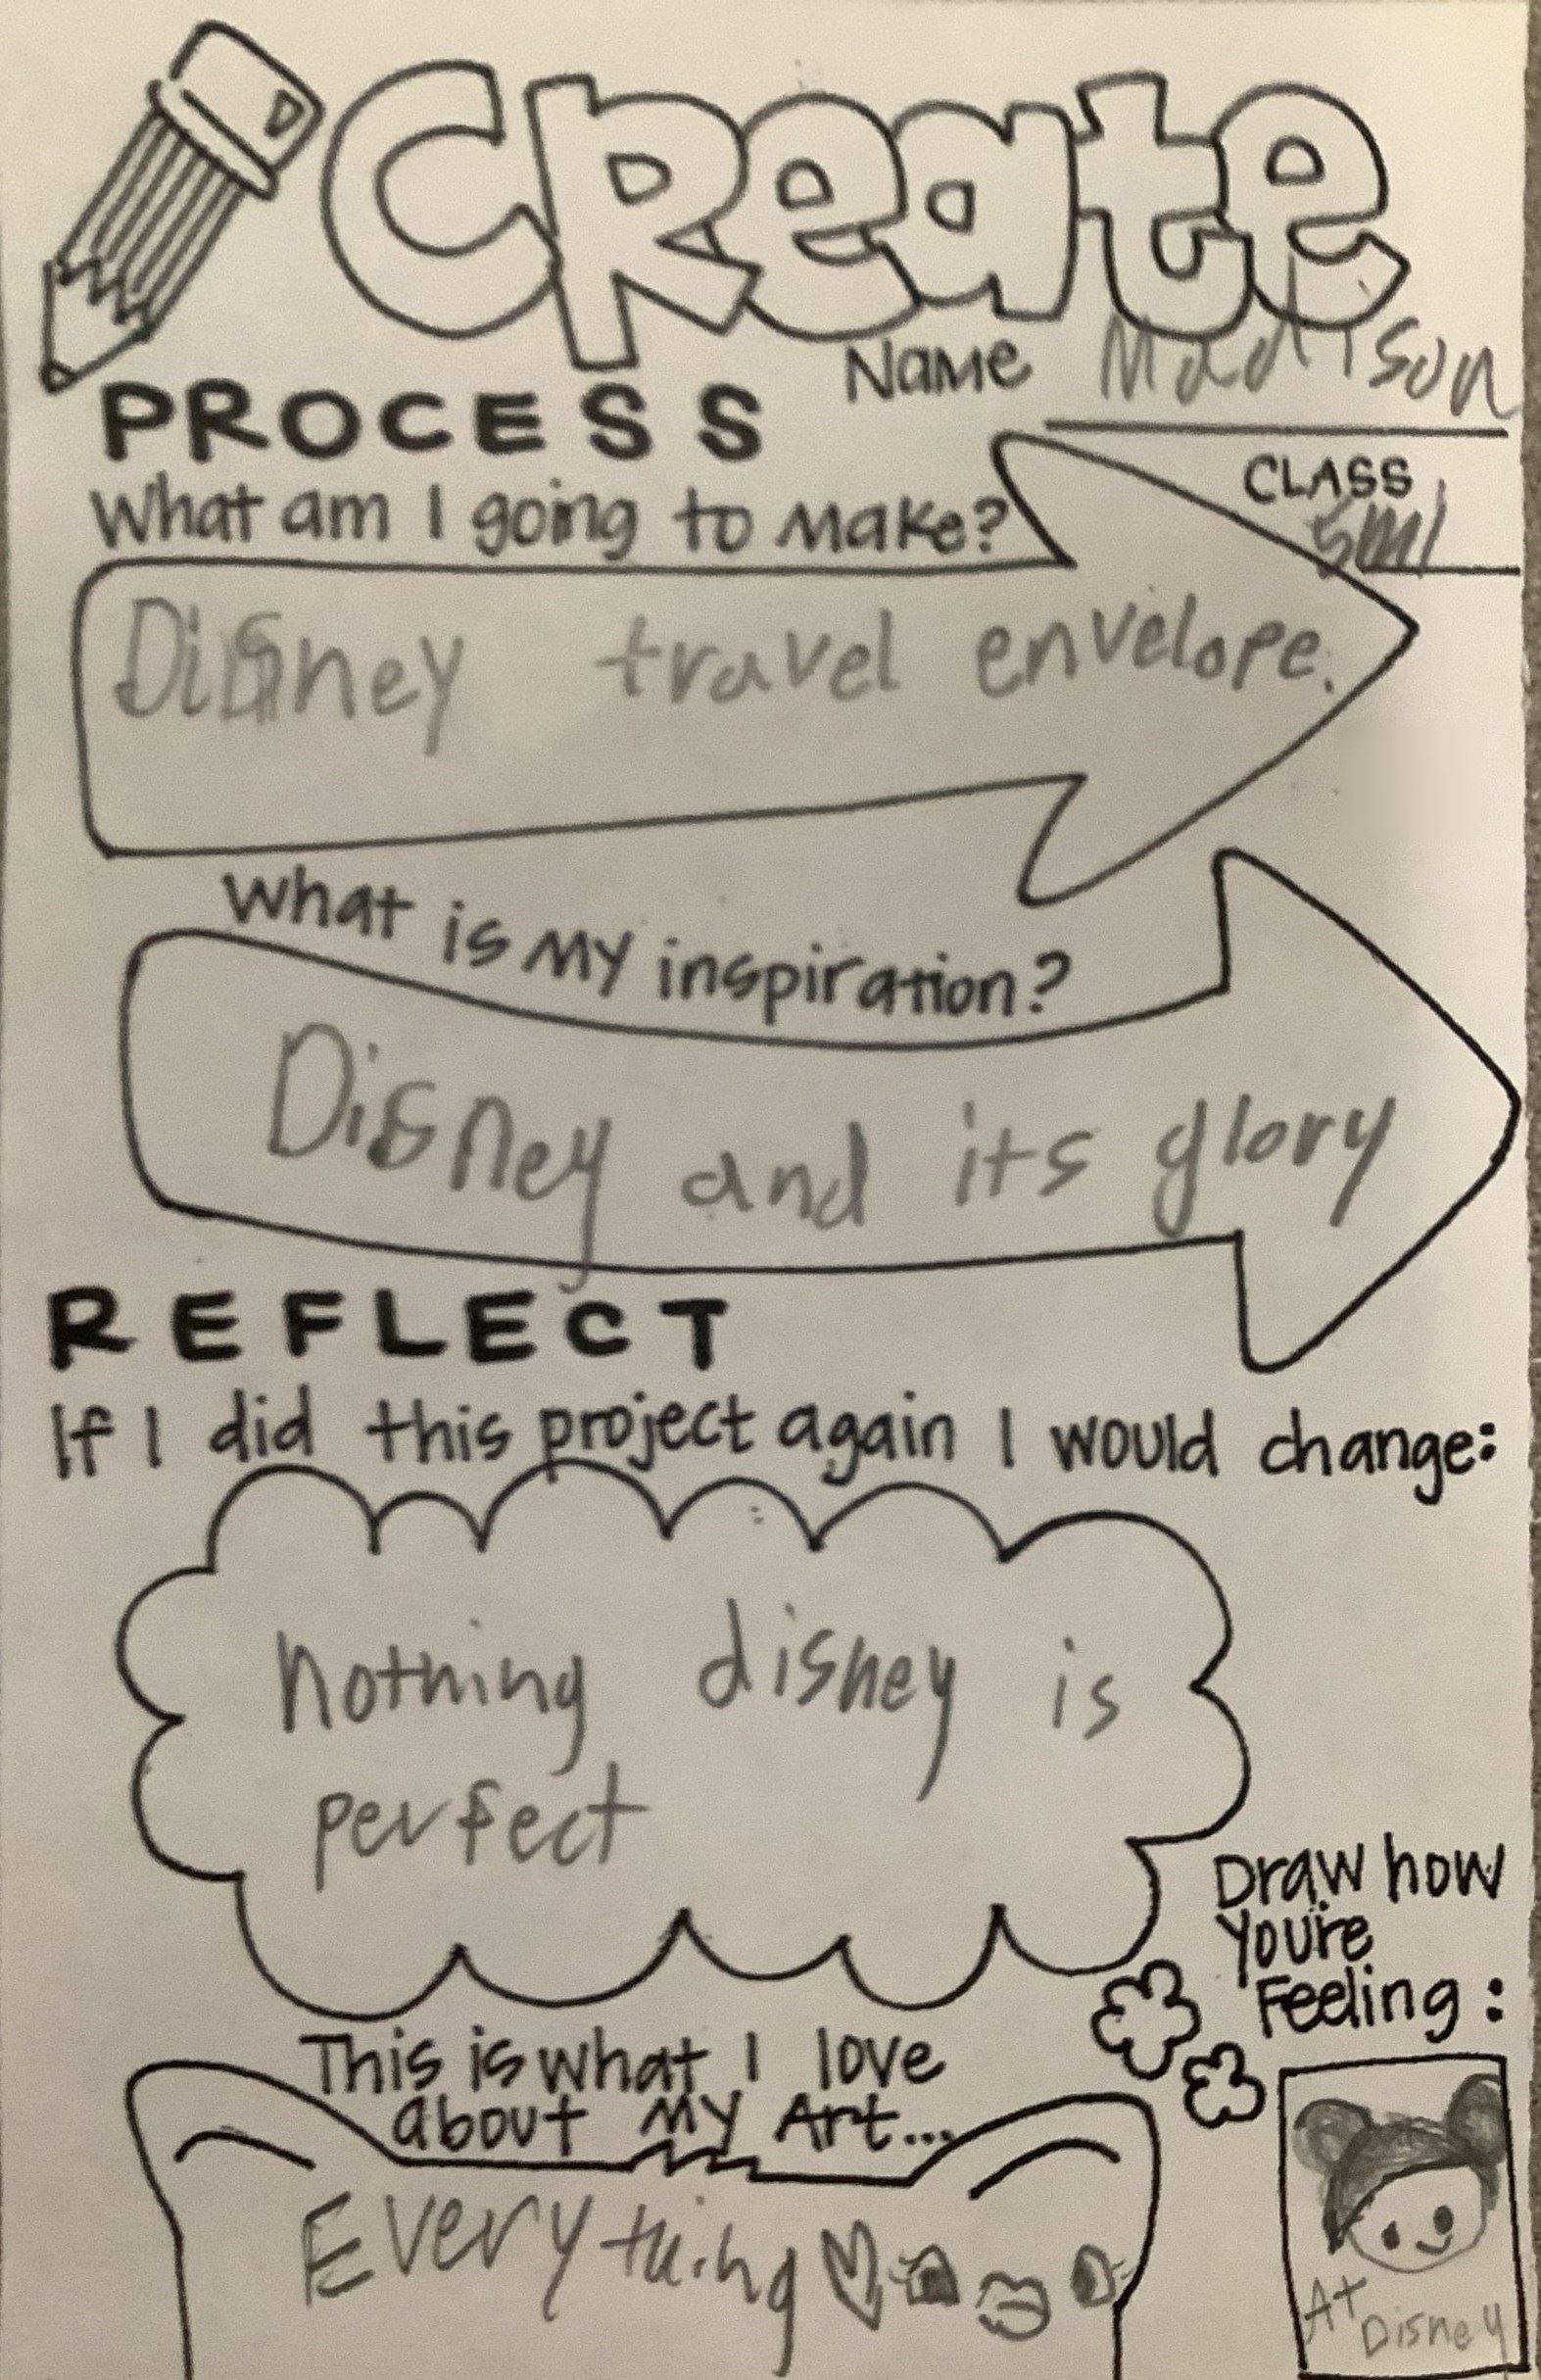 Create
Name Madison
PROCESS
CLASS
What am I going to make?
5M1
Disney travel envelope.
What is my inspiration?
Disney and its glory
REFLECT
If I did this project again I would change:
nothing disney is
perfect
Draw how
you're
Feeling:
This is what I love
about my Art...
Everything
At
Disney